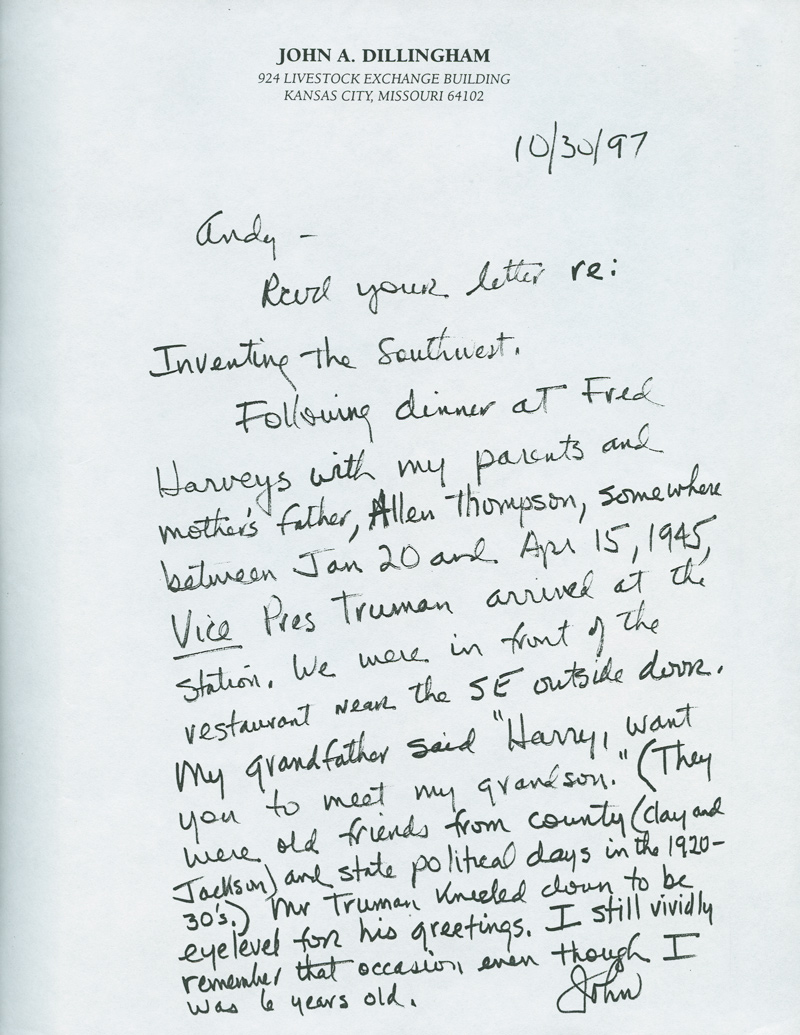 JOHN A. DILLINGHAM
924 LIVESTOCK EXCHANGE BUILDING
KANSAS CITY, MISSOURI 64102
10/30/97
Andy –
Recvd your letter re:
Inventing the Southwest.
Following dinner at Fred
Harveys with my parents and
mother's father, Allen Thompson, somewhere
between Jan 20 and Apr 15, 1945,
Vice Pres Truman arrived at the
station. We were in front of the
restaurant near the SE outside door.
My grandfather said "Harry, want
you to meet my grandson." (They
were old friends from county (Clay and
Jackson) and state political days in the 1920–
30's.) Mr Truman kneeled down to be
eyelevel for his greetings. I still vividly
remember that occasion, even though I
was 6 years old. John